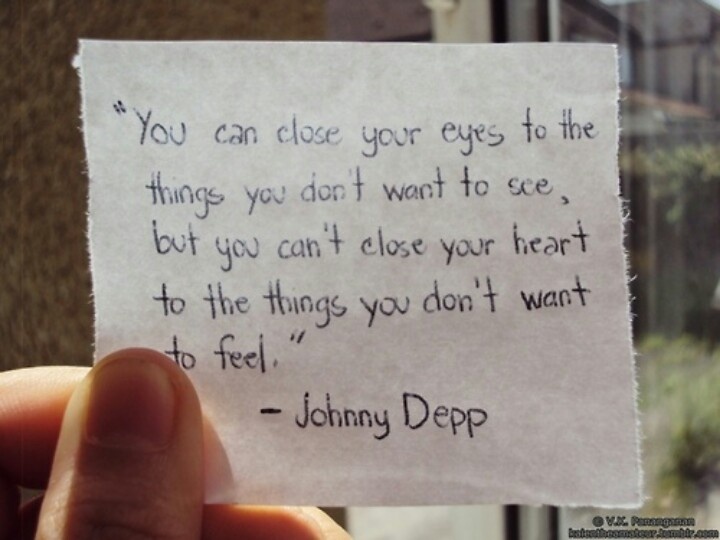 "You can close your eyes to the
things you don't want to see,
but you can't close your heart
to the things you don't want
to feel."
- Johnny Depp
© V.K. Panangnan
kaientheamateur.tumblr.com